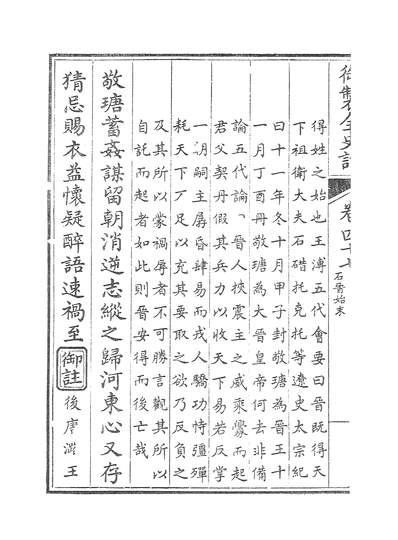 御製全史詩
卷四十七
石晉始末
得姓之始也王溥五代會要曰晉既得天
下祖衛大夫石碏托克托等遼史太宗紀
曰十一年冬十月甲子封敬瑭為晉王十
一月丁酉冊敬瑭為大晉皇帝何去非備
論五代論晉人挾震主之威乘釁而起
君父契丹假其兵力以收天下易若反掌
一朝嗣主孱昏肆易而戎人驕功恃彊殫
耗天下不足以充其要取之欲乃反負之
及其所以蒙禍辱者不可勝言觀其所以
自託而起者如此則晉安得而後亡哉
敬瑭蓄姦謀留朝消逆志縱之歸河東心又存
猜忌賜衣益懷疑醉語速禍至御註後唐潞王